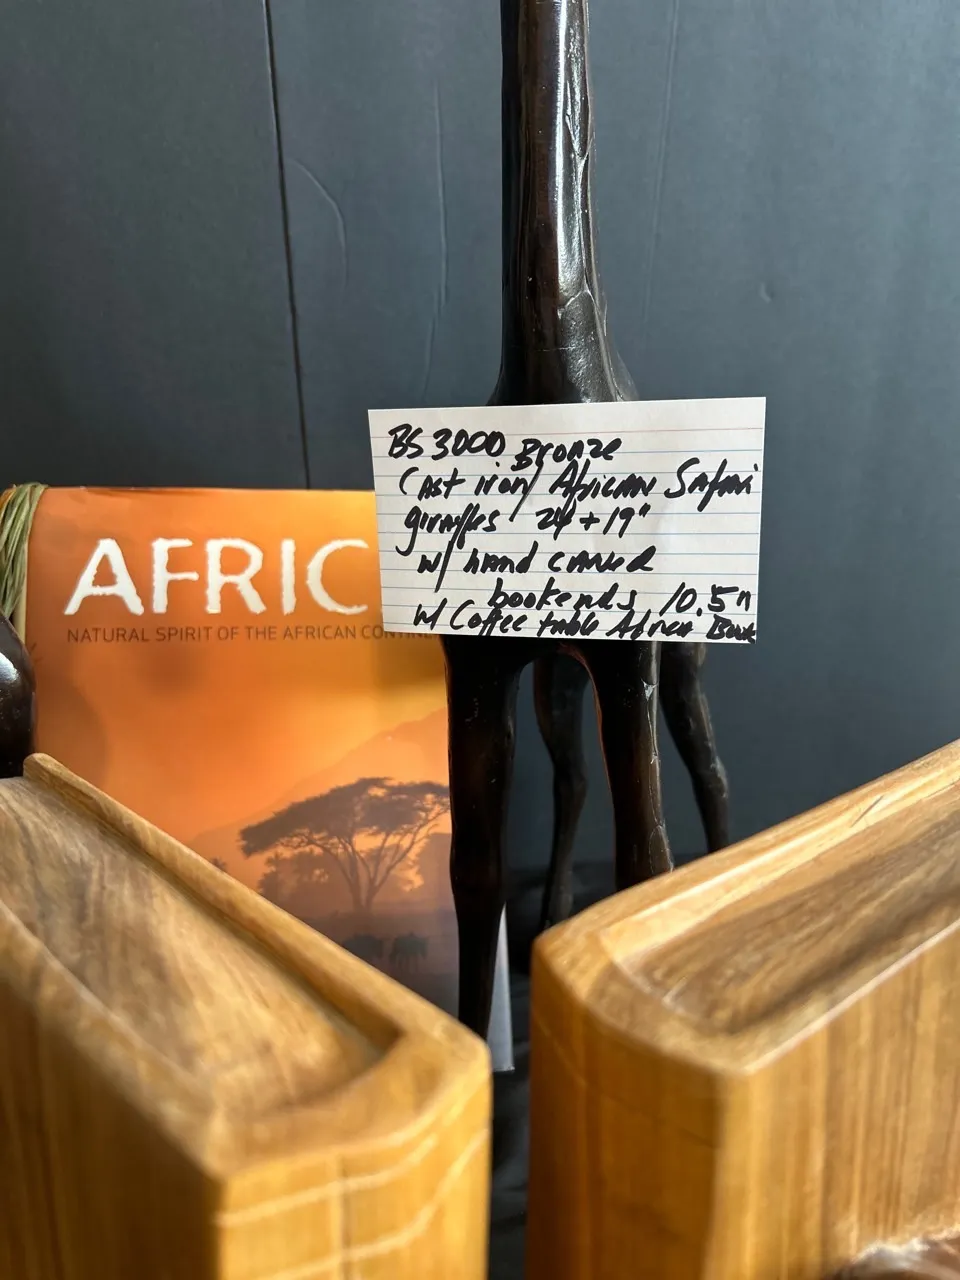 BS 3000 Bronze
Cast iron/ African Safari
giraffes 24 + 19"
w/ hand carved
bookends 10.5"
w/ Coffee table Africa Book
AFRIC
NATURAL SPIRIT OF THE AFRICAN CONTINE